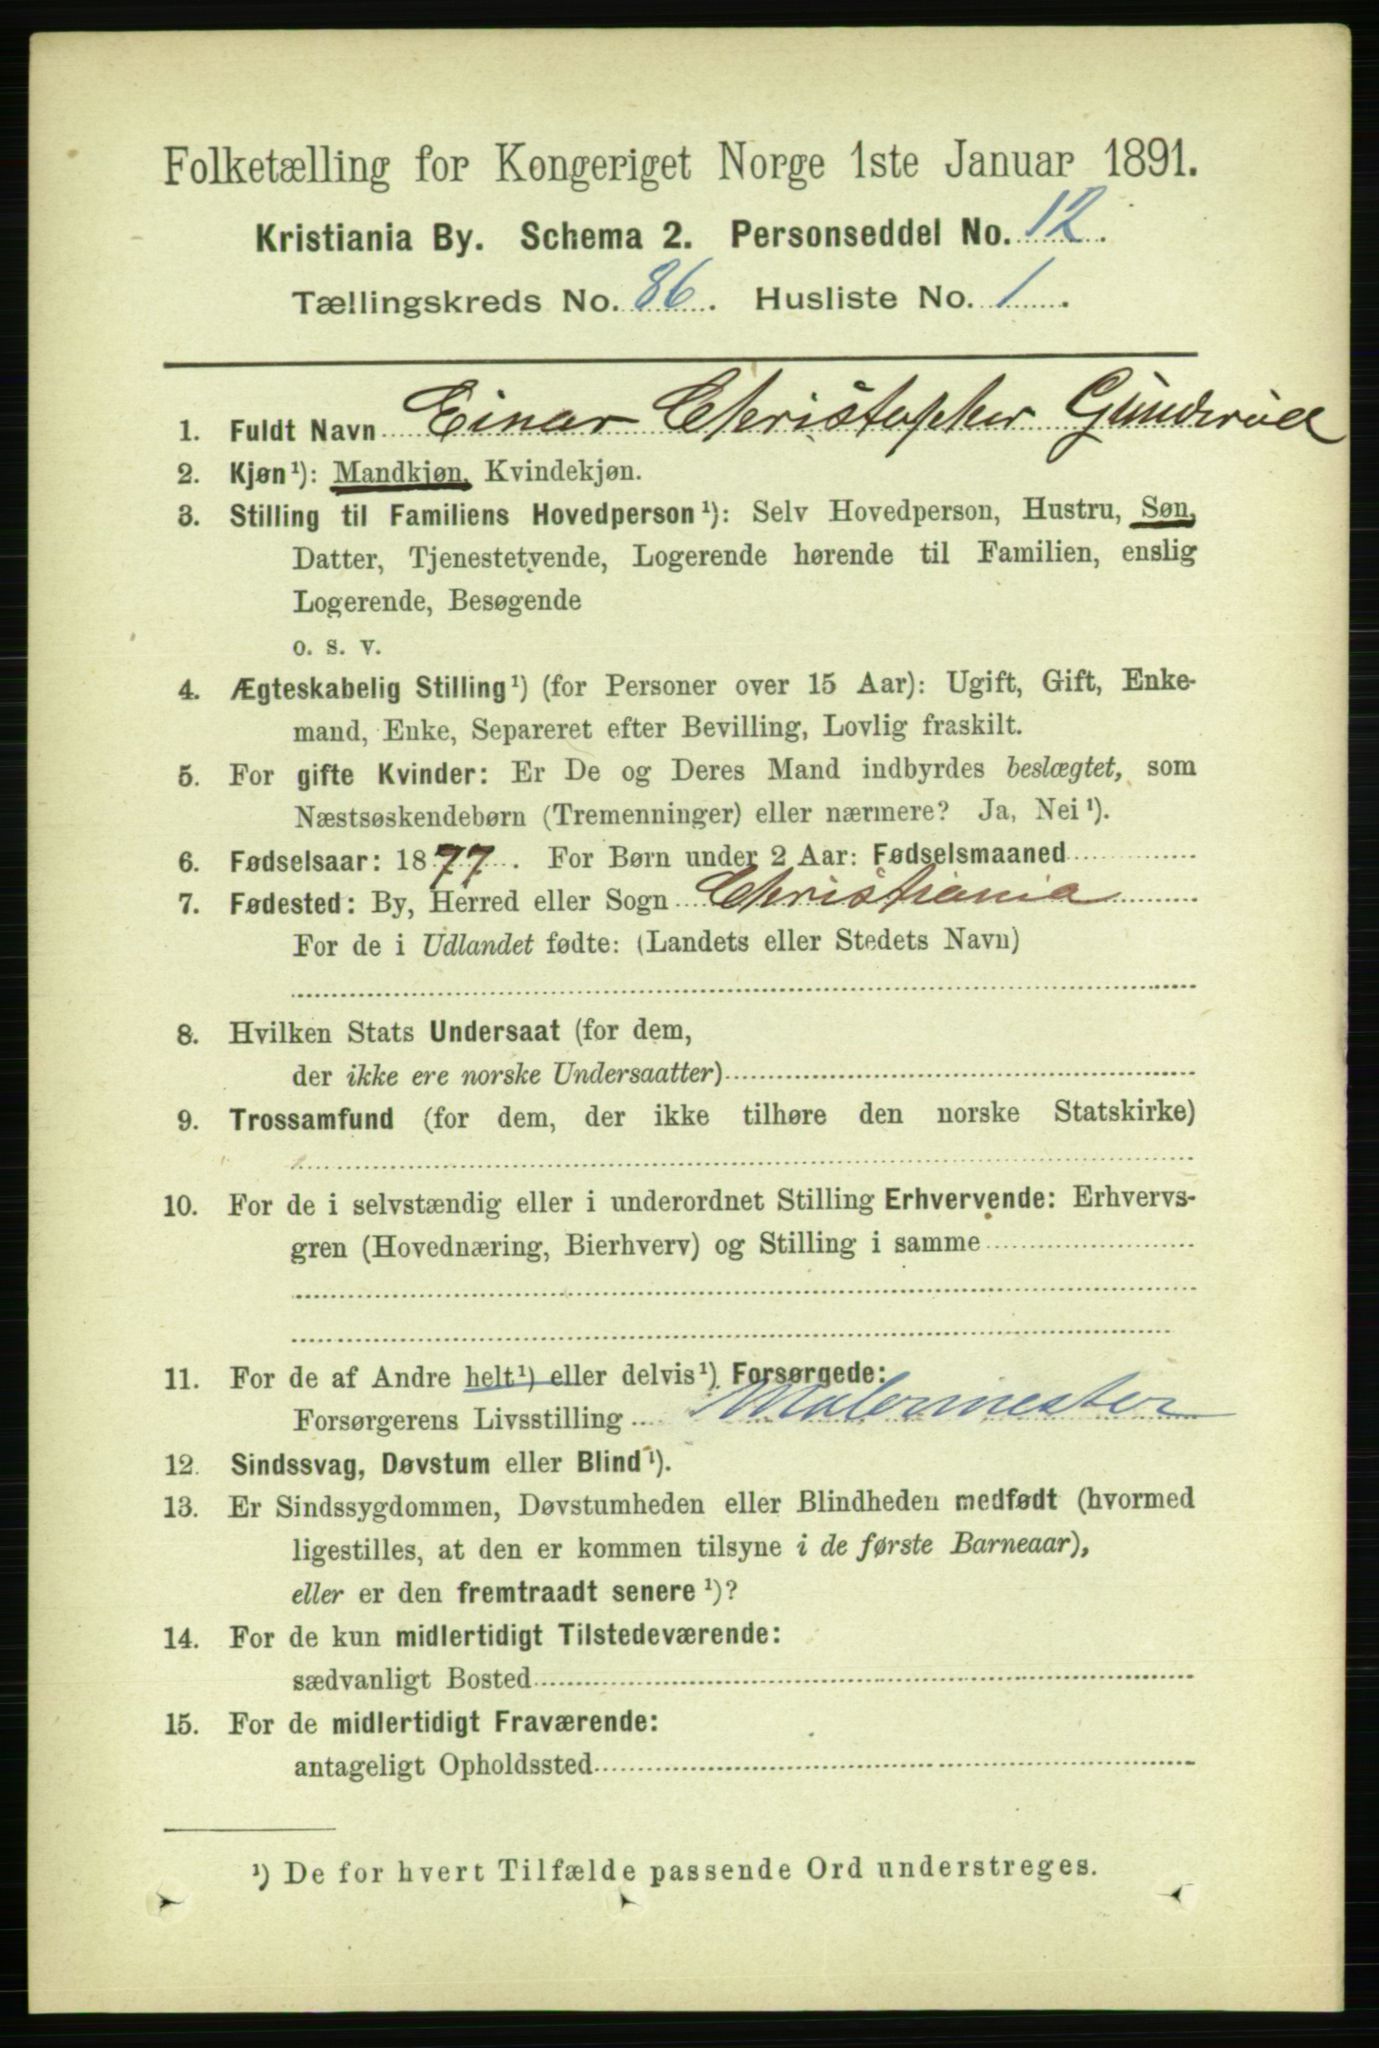 Folketælling for Kongeriget Norge 1ste Januar 1891.
Kristiania By. Schema 2. Personseddel No. 12.
Tællingskreds No. 86. Husliste No. 1.
1. Fuldt Navn Einar Christopher
2. Kjøn¹): Mandkjøn, Kvindekjøn.
3. Stilling til Familiens Hovedperson¹): Selv Hovedperson, Hustru, Søn,
Datter, Tjenestetyende, Logerende hørende til Familien, enslig
Logerende, Besøgende
o. s. v.
4. Ægteskabelig Stilling¹) (for Personer over 15 Aar): Ugift, Gift, Enke-
mand, Enke, Separeret efter Bevilling, Lovlig fraskilt.
5. For gifte Kvinder: Er De og Deres Mand indbyrdes beslægtet, som
Næstsøskendebørn (Tremenninger) eller nærmere? Ja, Nei¹).
6. Fødselsaar: 1877. For Børn under 2 Aar: Fødselsmaaned
7. Fødested: By, Herred eller Sogn Christiania
For de i Udlandet fødte: (Landets eller Stedets Navn)
8. Hvilken Stats Undersaat (for dem,
der ikke ere norske Undersaatter)
9. Trossamfund (for dem, der ikke tilhøre den norske Statskirke)
10. For de i selvstændig eller i underordnet Stilling Erhvervende: Erhvervs-
gren (Hovednæring, Bierhverv) og Stilling i samme
11. For de af Andre helt¹) eller delvis¹) Forsørgede:
Forsørgerens Livsstilling Malermester
12. Sindssvag, Døvstum eller Blind¹).
13. Er Sindssygdommen, Døvstumheden eller Blindheden medfødt (hvormed
ligestilles, at den er kommen tilsyne i de første Barneaar),
eller er den fremtraadt senere¹)?
14. For de kun midlertidigt Tilstedeværende:
sædvanligt Bosted
15. For de midlertidigt Fraværende:
antageligt Opholdssted
¹) De for hvert Tilfælde passende Ord understreges.